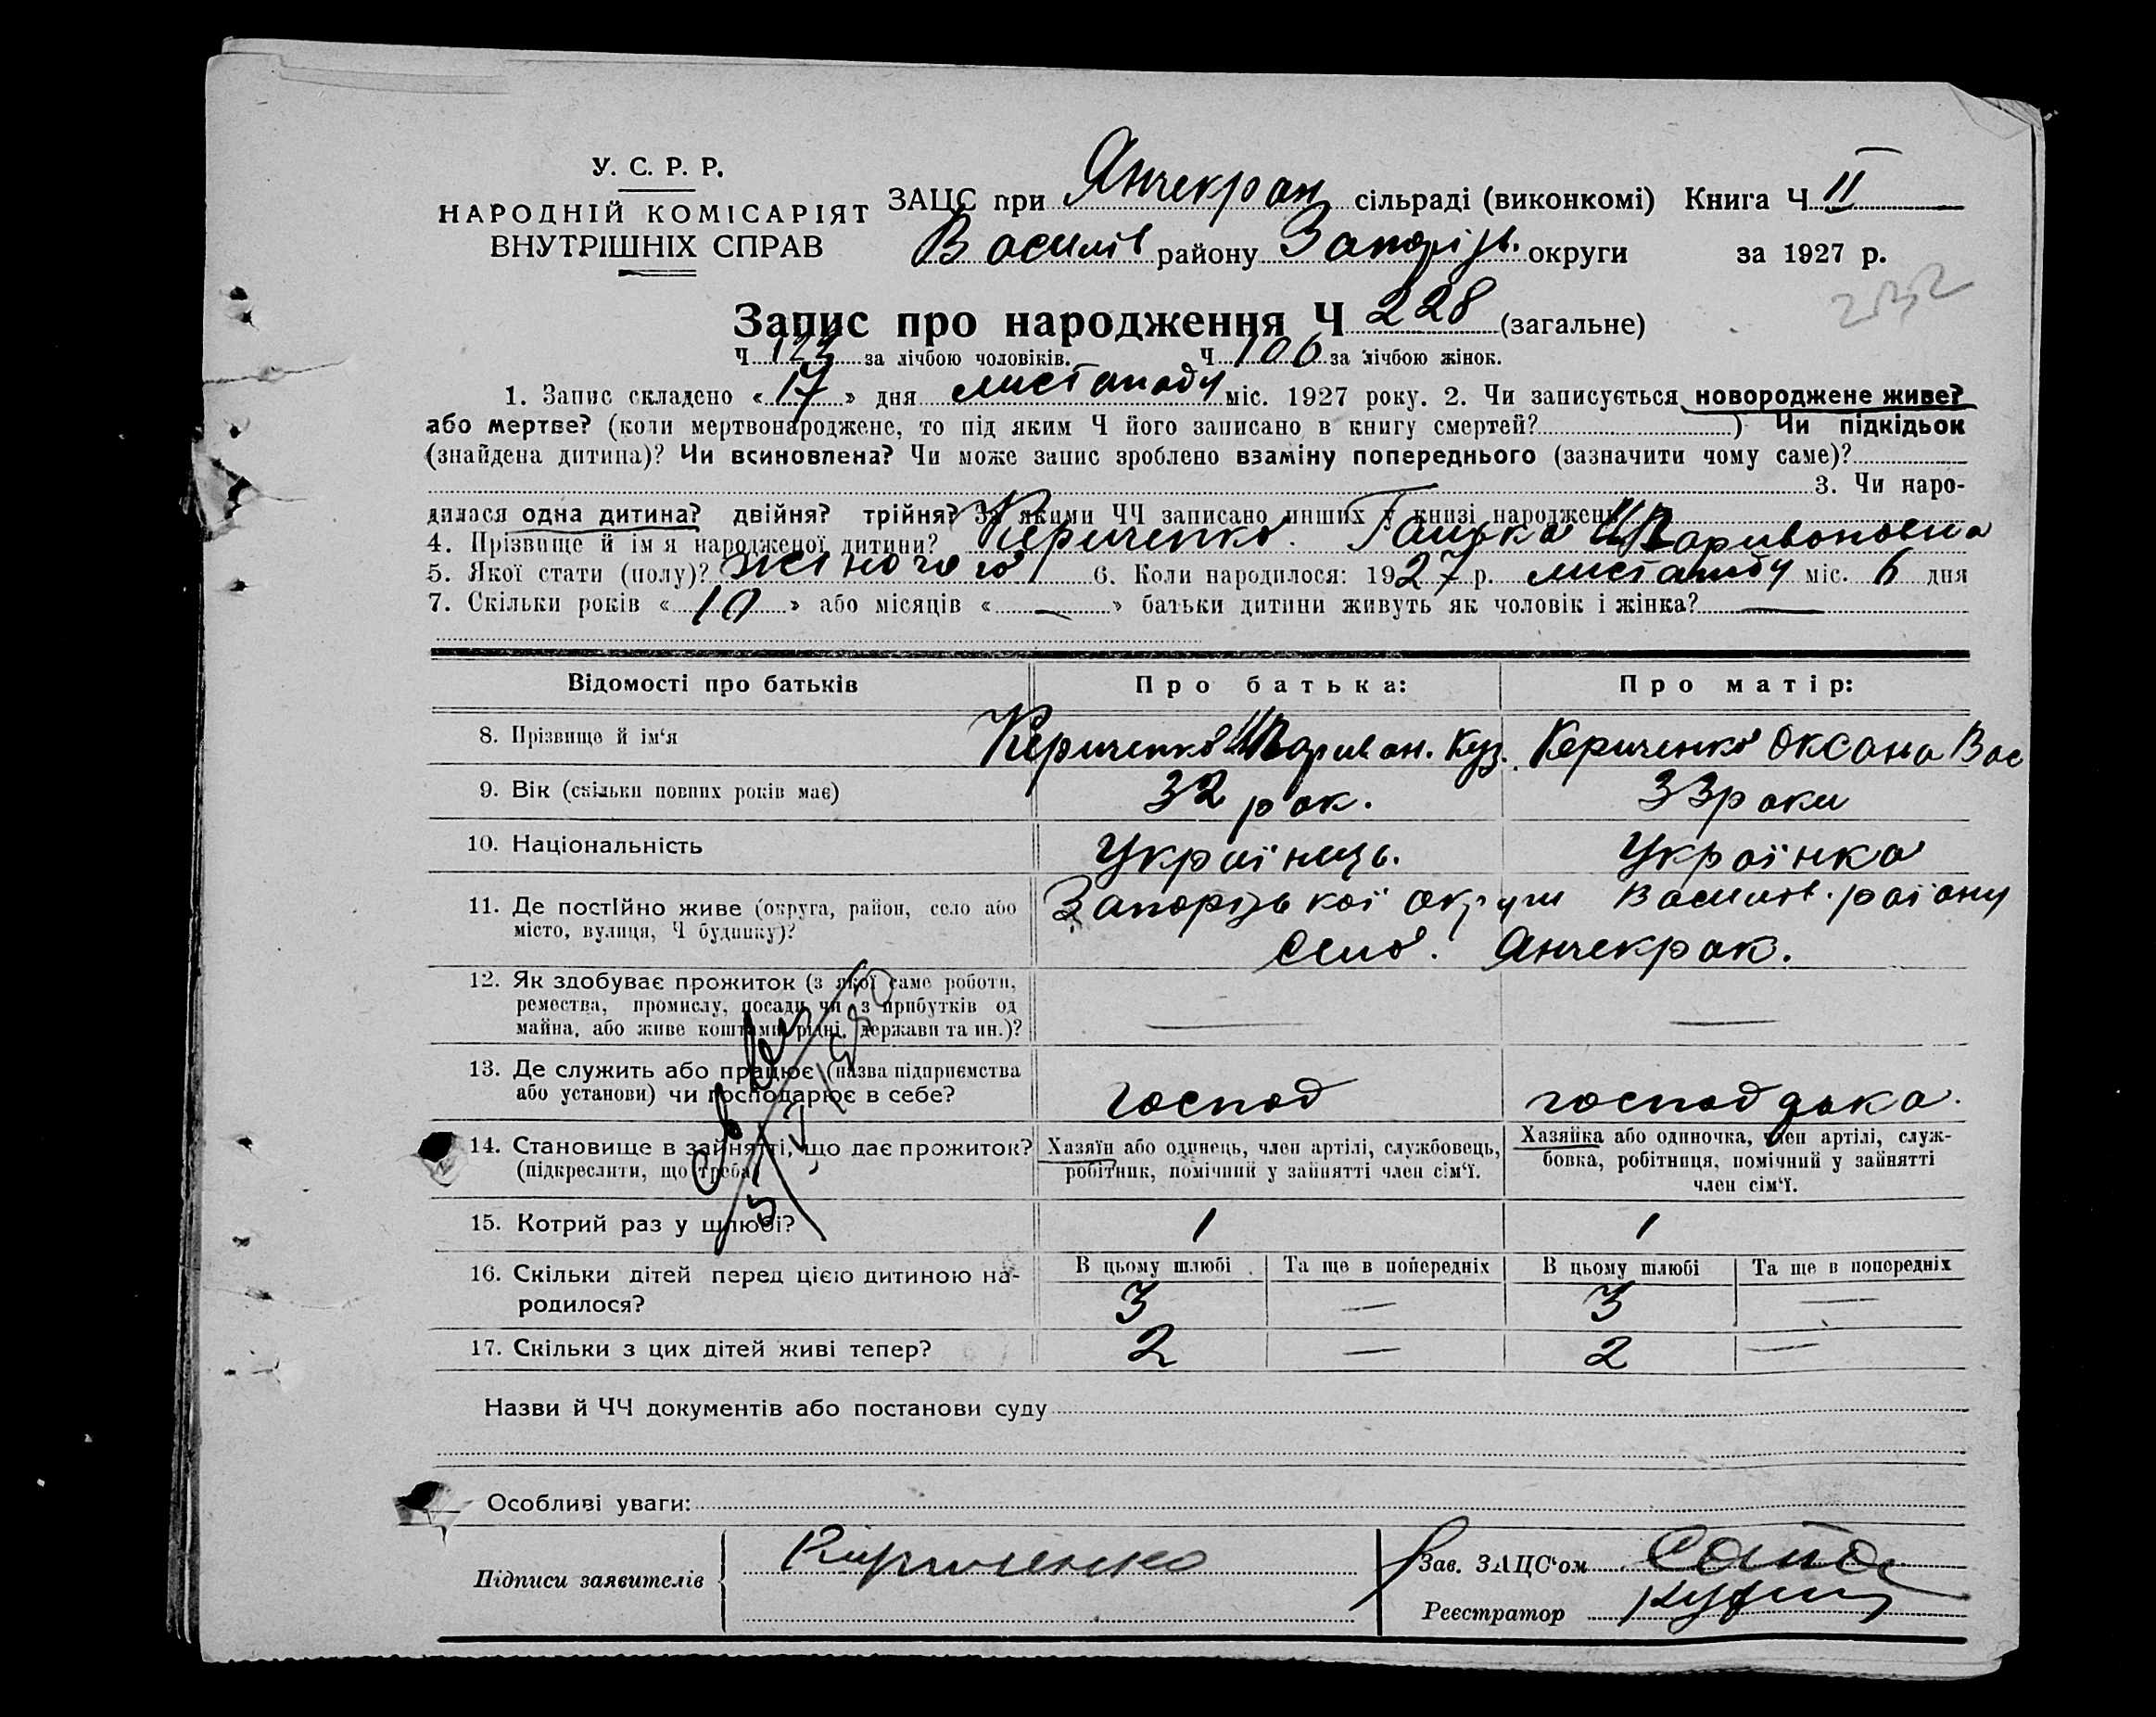 У. С. Р. Р.
НАРОДНІЙ КОМІСАРІЯТ
ВНУТРІШНІХ СПРАВ
ЗАЦС при Янчекрак сільраді (виконкомі) Книга Ч II
Василів району Запоріз. округи за 1927 р.
232
Запис про народження Ч 228 (загальне)
Ч 123 за лічбою чоловіків. Ч 106 за лічбою жінок.
1. Запис складено « 17 » дня листопаду міс. 1927 року. 2. Чи записується новороджене живе?
або мертве? (коли мертвонароджене, то під яким Ч його записано в книгу смертей? ) Чи підкідьок
(знайдена дитина)? Чи всиновлена? Чи може запис зроблено взаміну попереднього (зазначити чому саме)?
3. Чи наро-
дилася одна дитина? двійня? трійня? За якими ЧЧ записано инших у книзі народжень
4. Прізвище й ім я народженої дитини? Кериченко Ганька Паривоновна
5. Якої стати (полу)? жіночого 6. Коли народилося: 1927 р. листопаду міс. 6 дня
7. Скільки років « 10 » або місяців « — » батьки дитини живуть як чоловік і жінка? —
Відомості про батьків Про батька: Про матір:
8. Прізвище й ім‘я Кериченко Паривон. Куз. Кериченко Оксана Вас
9. Вік (скільки повних років має) 32 рок. 33 роки
10. Національність Українець. Українка
11. Де постійно живе (округа, район, село або Запорізької округи Василів. району
місто, вулиця, Ч будинку)? село. Янчекрак.
12. Як здобуває прожиток (з якої саме роботи,
ремества, промислу, посади чи з прибутків од
майна, або живе коштами рідні, держави та ин.)? — —
13. Де служить або працює (назва підприємства
або установи) чи господарює в себе? господ господарка.
14. Становище в зайнятті, що дає прожиток? Хазяїн або одинець, член артілі, службовець, Хазяйка або одиночка, член артілі, служ-
(підкреслити, що треба) робітник, помічний у зайнятті член сім‘ї. бовка, робітниця, помічний у зайнятті
член сім‘ї.
15. Котрий раз у шлюбі? 1 1
16. Скільки дітей перед цією дитиною на- В цьому шлюбі Та ще в попередніх В цьому шлюбі Та ще в попередніх
родилося? 3 — 3 —
17. Скільки з цих дітей живі тепер? 2 — 2 —
Назви й ЧЧ документів або постанови суду
Особливі уваги:
Підписи заявителів Кириченко Зав. ЗАЦС‘ом
Реєстратор